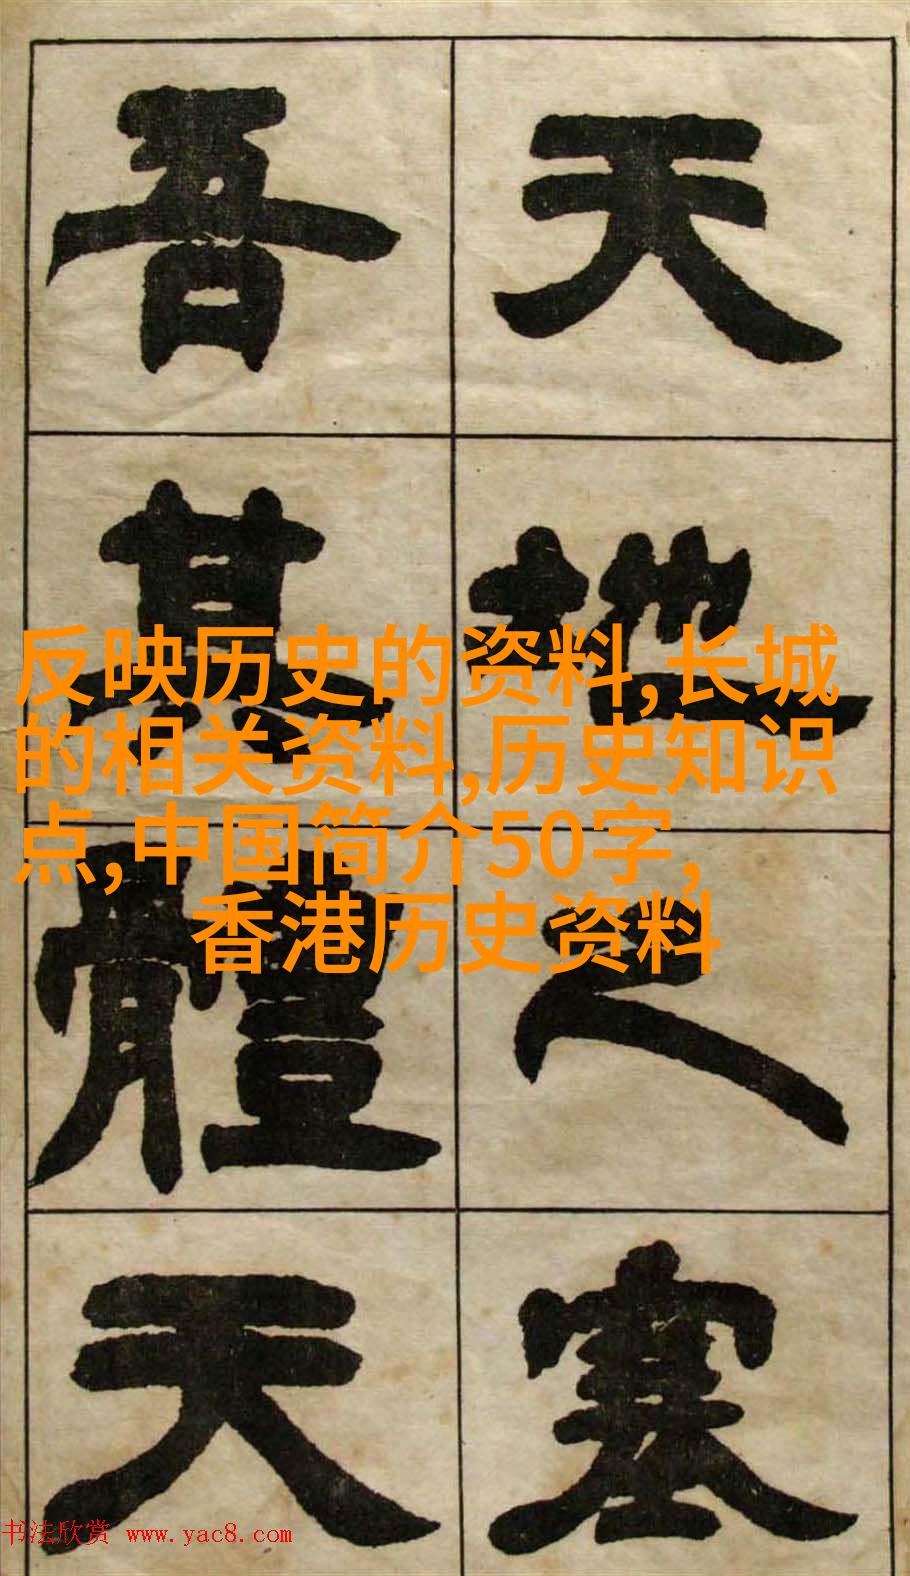 天地之塞
吾其體天
反映历史的资料,长城
的相关资料,历史知识
点,中国简介50字,
香港历史资料
书法欣赏 www.yac8.com